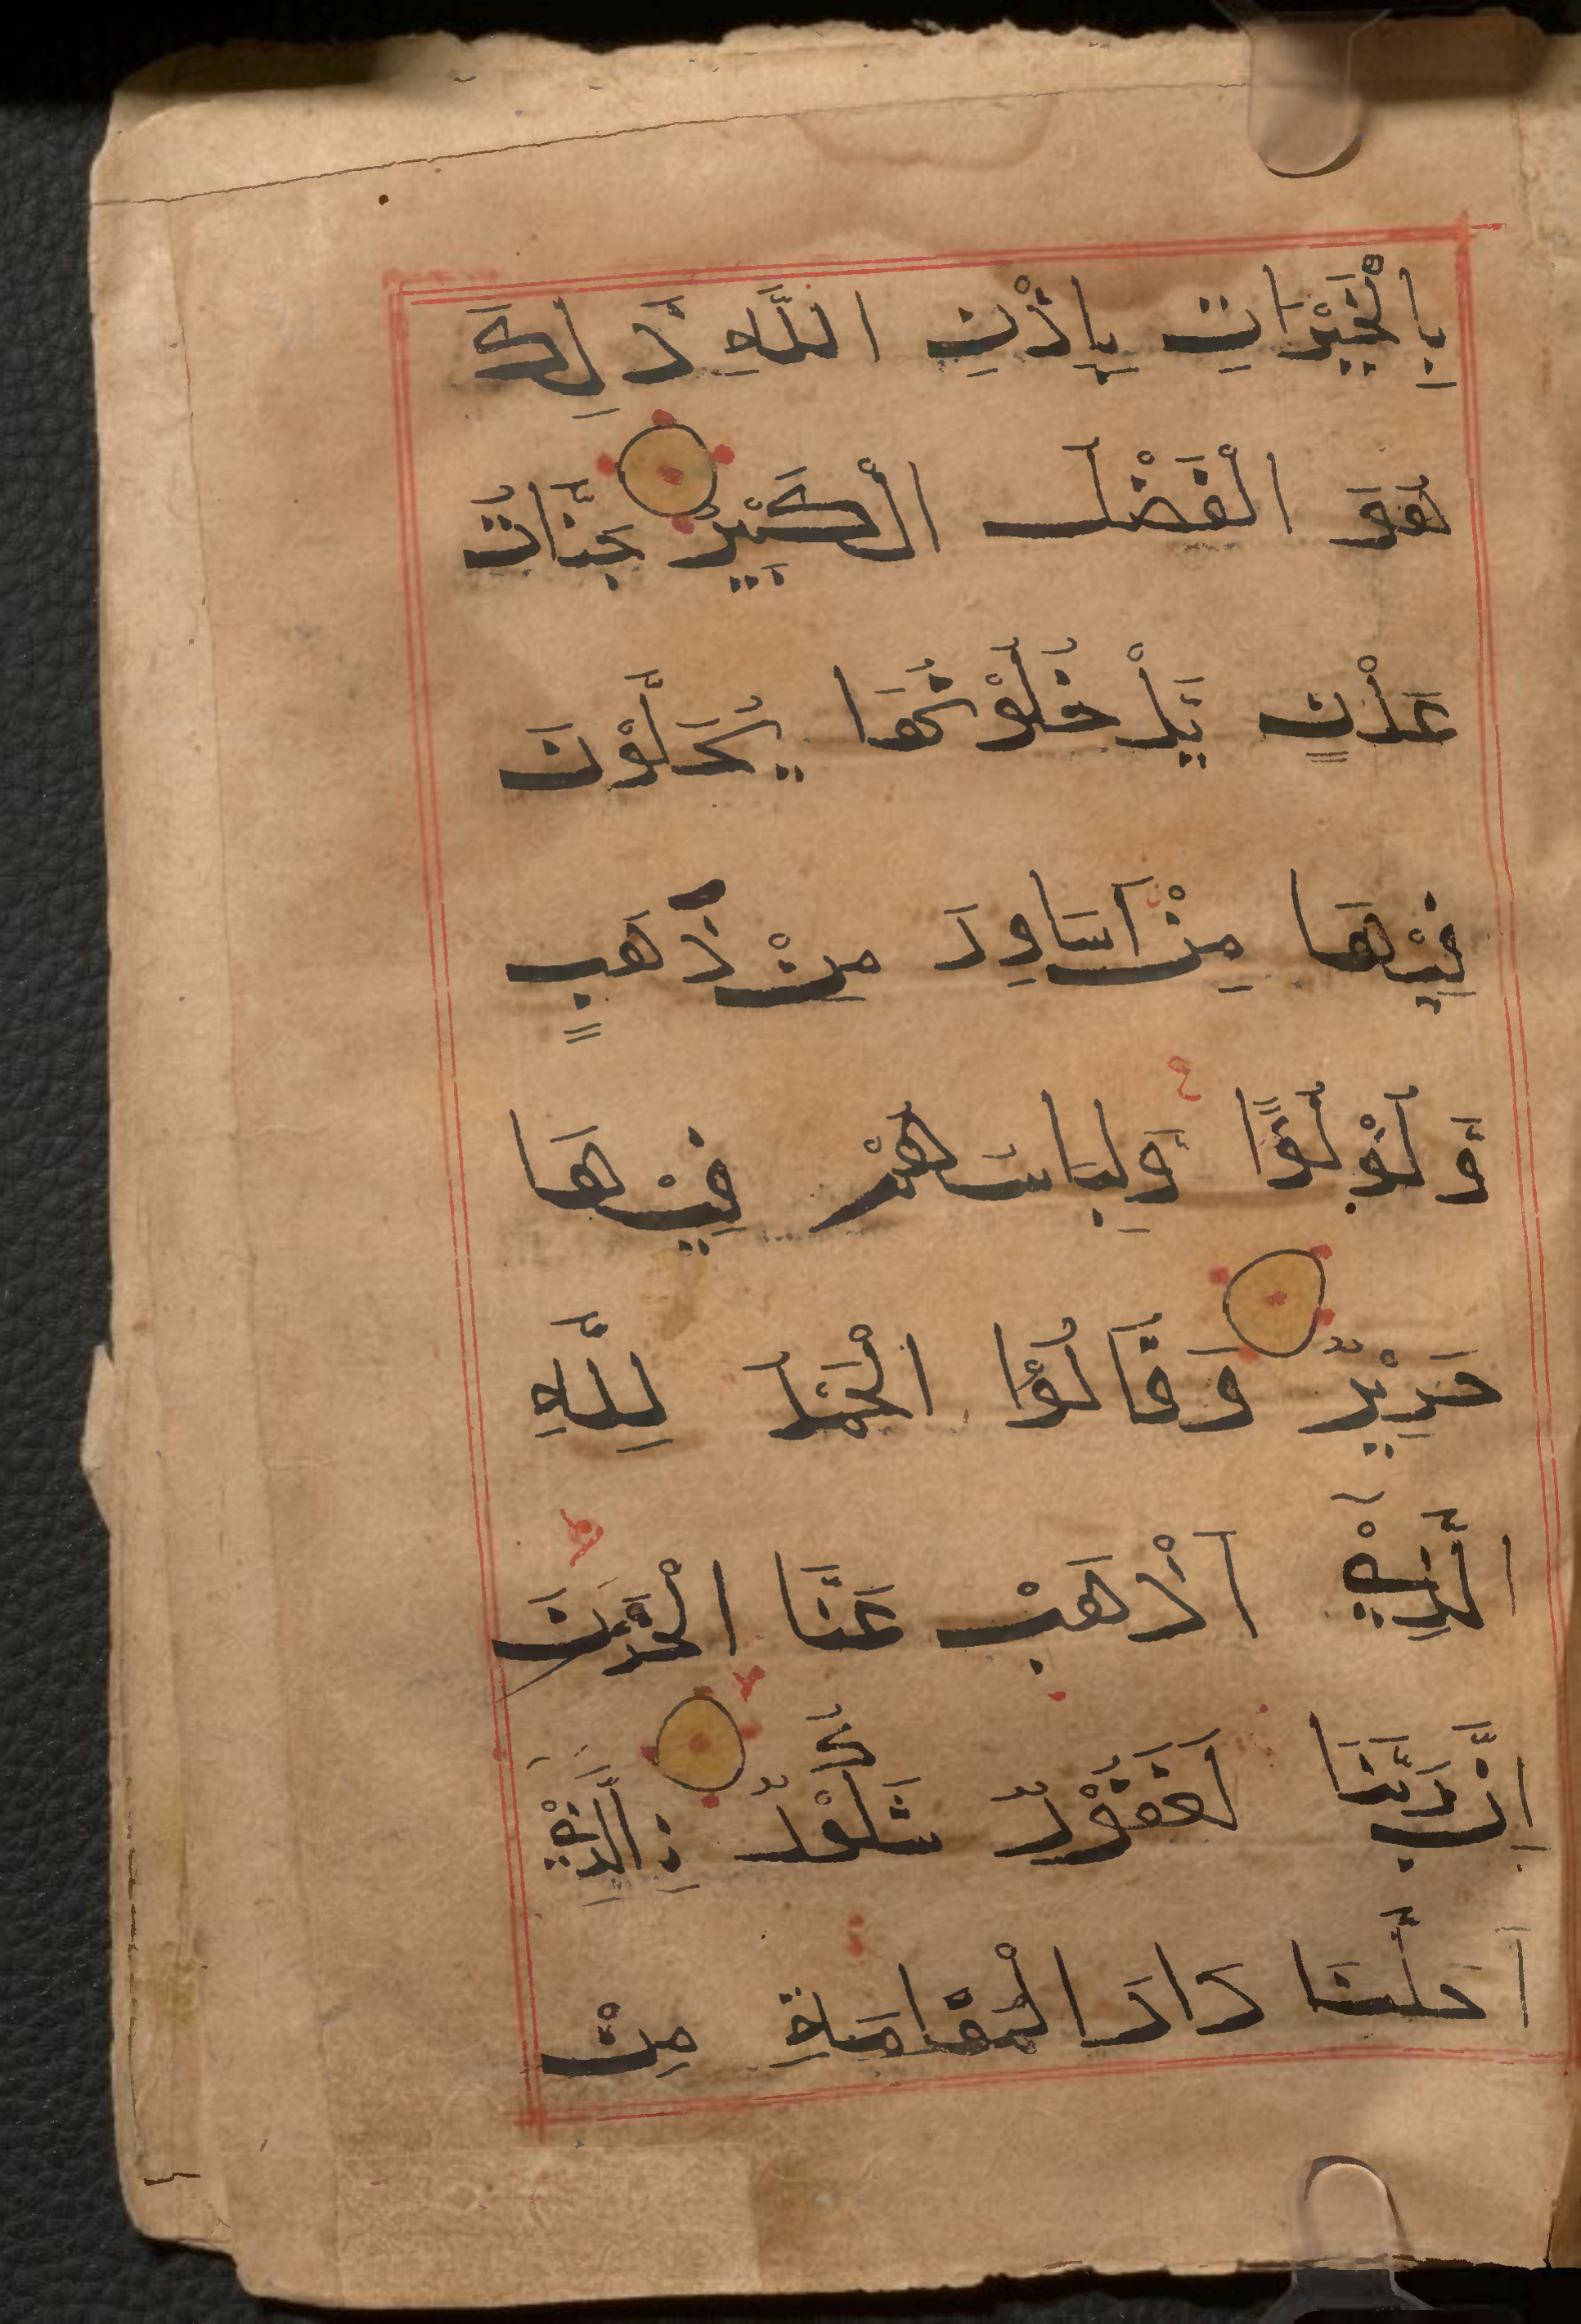 بِالْخَيْرَاتِ بِاِذْنِ اللّٰهِ ذَلِكَ
هُوَ الْفَضْلُ الْكَبِيْرُ جَنَّاتُ
عَدْنٍ يَدْخُلُوْنَهَا يُحَلَّوْنَ
فِيْهَا مِنْ اَسَاوِرَ مِنْ ذَهَبٍ
وَلُؤْلُؤًا وَلِبَاسُهُمْ فِيْهَا
حَرِيْرٌ وَقَالُوا الْحَمْدُ لِلّٰهِ
الَّذِيْ اَذْهَبَ عَنَّا الْحَزَنَ
اِنَّ رَبَّنَا لَغَفُوْرٌ شَكُوْرٌ نِ الَّذِيْ
اَحَلَّنَا دَارَ الْمُقَامَةِ مِنْ